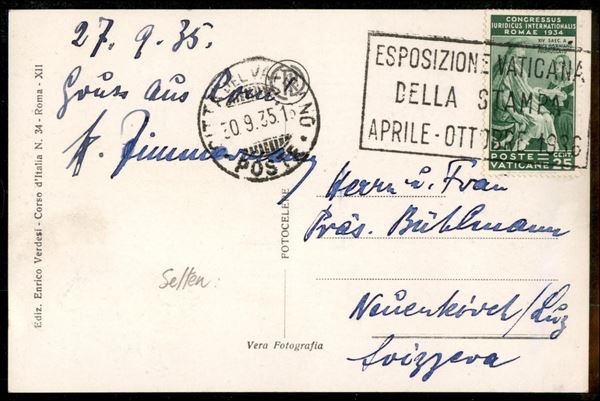 27.9.35.
Gruss aus Rom.
CITTA DEL VATICANO
30.9.35.1
POSTE
ESPOSIZIONE VATICANA
DELLA STAMPA
APRILE-OTTOBRE 1936
CONGRESSUS
IURIDICUS INTERNATIONALIS
ROMAE 1934
XIV SAEC. A
POSTE
VATICANE
CENT.
25
Herrn u. Frau
Präs. Bühlmann
Neuenkirch/Luz
Svizzera
Selten:
Ediz. Enrico Verdesi - Corso d'Italia N. 34 - Roma - XII
FOTOCELERE
Vera Fotografia